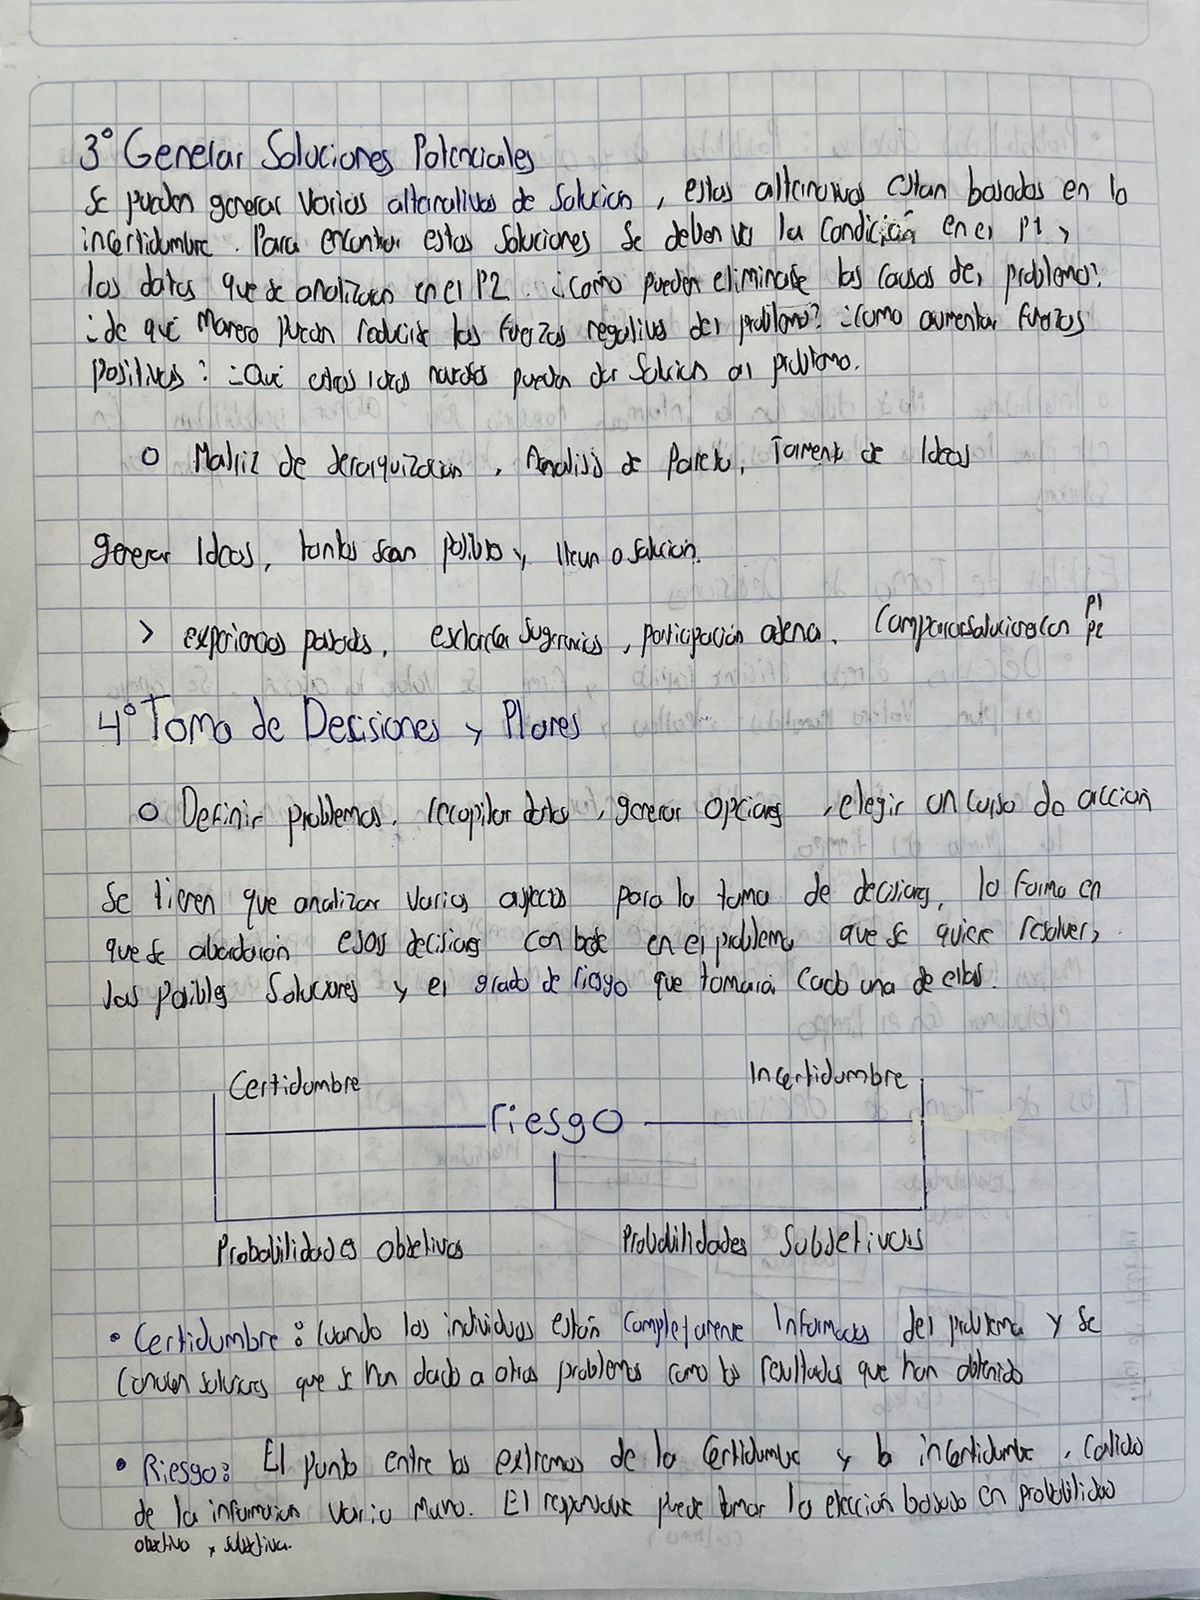 3° Generar Soluciones Potenciales
Se pueden generar varias alternativas de solución, estas alternativas estan basadas en la
incertidumbre. Para encontrar estas soluciones se deben ver la Condición en el P1 y
los datos que se analizaron en el P2. ¿Cómo pueden eliminarse las causas del problema?
¿de qué Manera pueden reducirse las fuerzas negativas del problema? ¿Como aumentar fuerzas
positivas? ¿Qué otras ideas pueden dar Solución al problema.
O Matriz de Jerarquización, Análisis de Pareto, Tormenta de Ideas
generar Ideas, tantas sean posibles y lleven a solución.
> experiencias pasadas, esclarecer sugerencias, participación ajena. Comparar soluciones con P1 P2
4° Toma de Decisiones y Planes
O Definir problemas, recopilar datos, generar opciones, elegir un curso de acción
Se tienen que analizar varios aspectos para la toma de decisiones, la forma en
que se abordarán esas decisiones con base en el problema que se quiere resolver,
las posibles Soluciones y el grado de riesgo que tomará cada una de ellas.
Certidumbre Incertidumbre
riesgo
Probabilidades objetivas Probabilidades Subjetivas
• Certidumbre: Cuando los individuos están completamente Informados del problema y se
Conocen soluciones que se han dado a otros problemas como los resultados que han obtenido
• Riesgo: El punto entre los extremos de la Certidumbre y la incertidumbre, Calidad
de la información varía mucho. El responsable puede tomar la elección basado en probabilidad
objetiva y subjetiva.